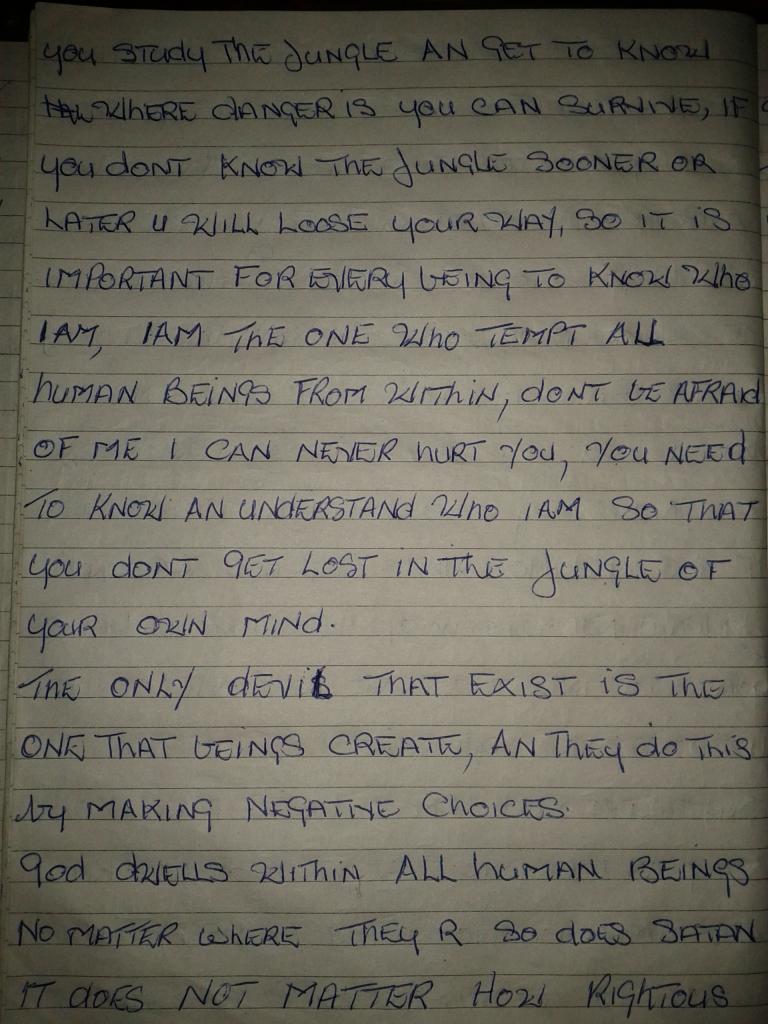 you STUDY THE JUNGLE AN GET TO KNOW
WHERE DANGER IS YOU CAN SURVIVE, IF
YOU DONT KNOW THE JUNGLE SOONER OR
LATER U WILL LOOSE YOUR WAY, SO IT IS
IMPORTANT FOR EVERY BEING TO KNOW WHO
I AM, I AM THE ONE WHO TEMPT ALL
HUMAN BEINGS FROM WITHIN, DONT BE AFRAID
OF ME I CAN NEVER HURT YOU, YOU NEED
TO KNOW AN UNDERSTAND WHO I AM SO THAT
YOU DONT GET LOST IN THE JUNGLE OF
YOUR OWN MIND.
THE ONLY DEVIL THAT EXIST IS THE
ONE THAT BEINGS CREATE, AN THEY DO THIS
BY MAKING NEGATIVE CHOICES.
GOD DWELLS WITHIN ALL HUMAN BEINGS
NO MATTER WHERE THEY R SO DOES SATAN
IT DOES NOT MATTER HOW RIGHTIOUS